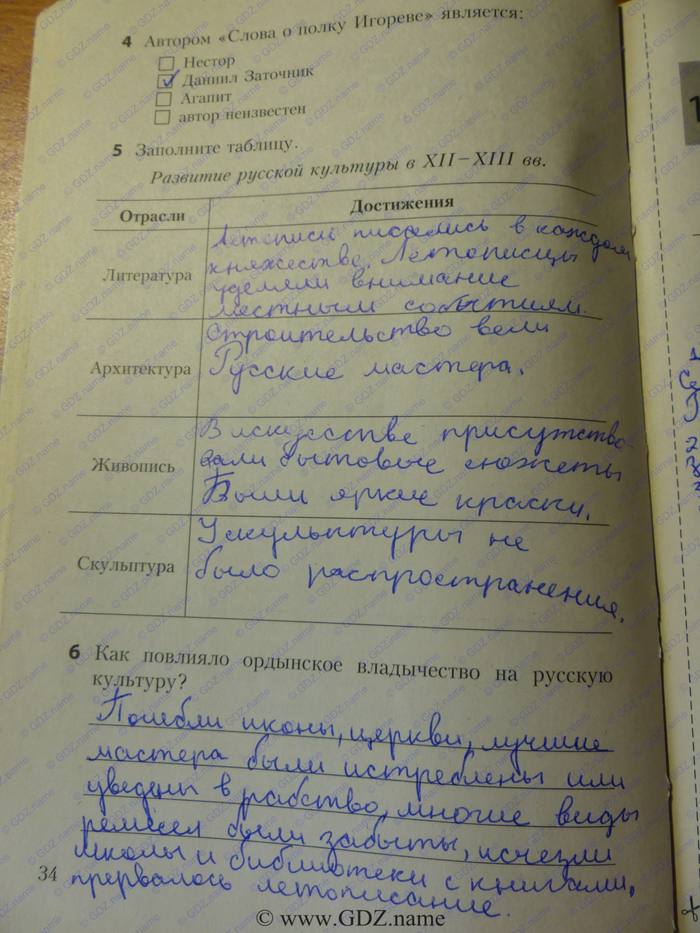 4 Автором «Слова о полку Игореве» является:
Нестор
Даниил Заточник
Агапит
автор неизвестен
5 Заполните таблицу.
Развитие русской культуры в XII–XIII вв.
Отрасли Достижения
Литература
Летописи писались в каждом
княжестве. Летописцы
уделяли внимание
местным событиям.
Архитектура
Строительство вели
Русские мастера.
Живопись
В искусстве присутство-
вали бытовые сюжеты
Были яркие краски.
Скульптура
У скульптуры не
было распространения.
6 Как повлияло ордынское владычество на русскую
культуру?
Погибли иконы, церкви, лучшие
мастера были истреблены или
уведены в рабство, многие виды
ремесел были забыты, исчезли
школы и библиотеки с книгами,
прервалось летописание.
34
© www.GDZ.name